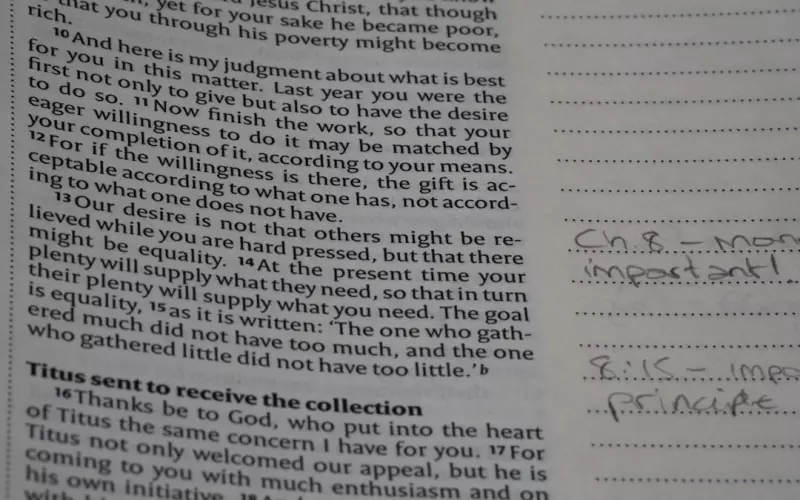 yet for your sake he became poor,
that you through his poverty might become
rich.
10 And here is my judgment about what is best
for you in this matter. Last year you were the
first not only to give but also to have the desire
to do so. 11 Now finish the work, so that your
eager willingness to do it may be matched by
your completion of it, according to your means.
12 For if the willingness is there, the gift is ac-
ceptable according to what one has, not accord-
ing to what one does not have.
13 Our desire is not that others might be re-
lieved while you are hard pressed, but that there
might be equality. 14 At the present time your
plenty will supply what they need, so that in turn
their plenty will supply what you need. The goal
is equality, 15 as it is written: ‘The one who gath-
ered much did not have too much, and the one
who gathered little did not have too little.’ b
Titus sent to receive the collection
16 Thanks be to God, who put into the heart
of Titus the same concern I have for you. 17 For
Titus not only welcomed our appeal, but he is
coming to you with much enthusiasm and on
his own initiative.
Ch 8 – mon
important!
8:15 – impo
principle